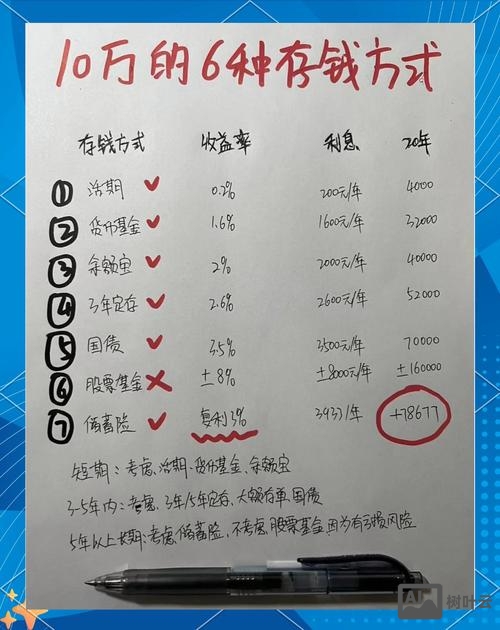 10万的6种存钱方式
存钱方式 收益率 利息 20年
① 活期 ✓ 0.2% 200元/年 4000
② 货币基金 ✓ 1.6% 1600元/年 32000
③ 余额宝 ✓ 2% 2000元/年 40000
④ 3年定存 ✓ 2.6% 2600元/年 52000
⑤ 国债 ✓ 3.5% 3500元/年 70000
⑥ 股票基金 ✗ ±8% ±8000元/年 ±160000
⑦ 储蓄险 ✓ 复利3% 3933/年 +78677
短期：考虑，活期、货币基金、余额宝
3-5年内：考虑，3年/5年定存、大额存单、国债
5年以上长期：考虑，储蓄险、不考虑股票基金，因为有亏损风险
AI 树叶云